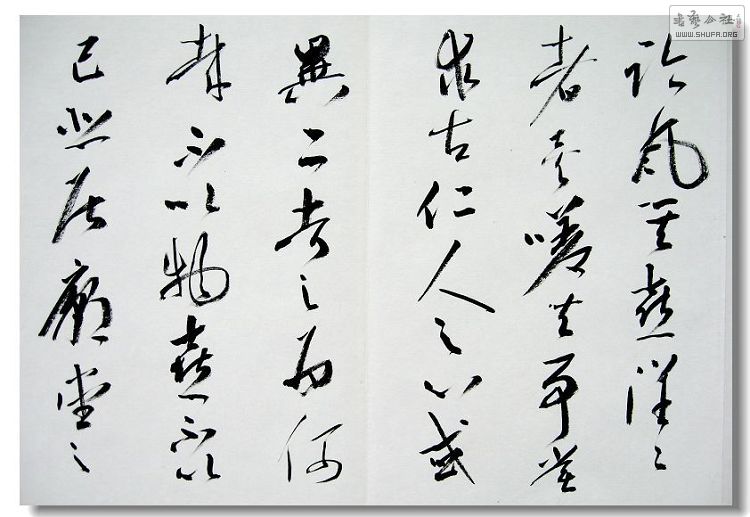 臨風其喜洋々
者矣嗟夫予嘗
求古仁人之心或
異二者之為何
哉不以物喜不以
己悲居廟堂之
書藝公社
WWW.SHUFA.ORG